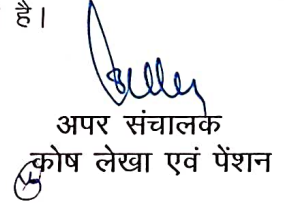 है।
अपर संचालक
कोष लेखा एवं पेंशन